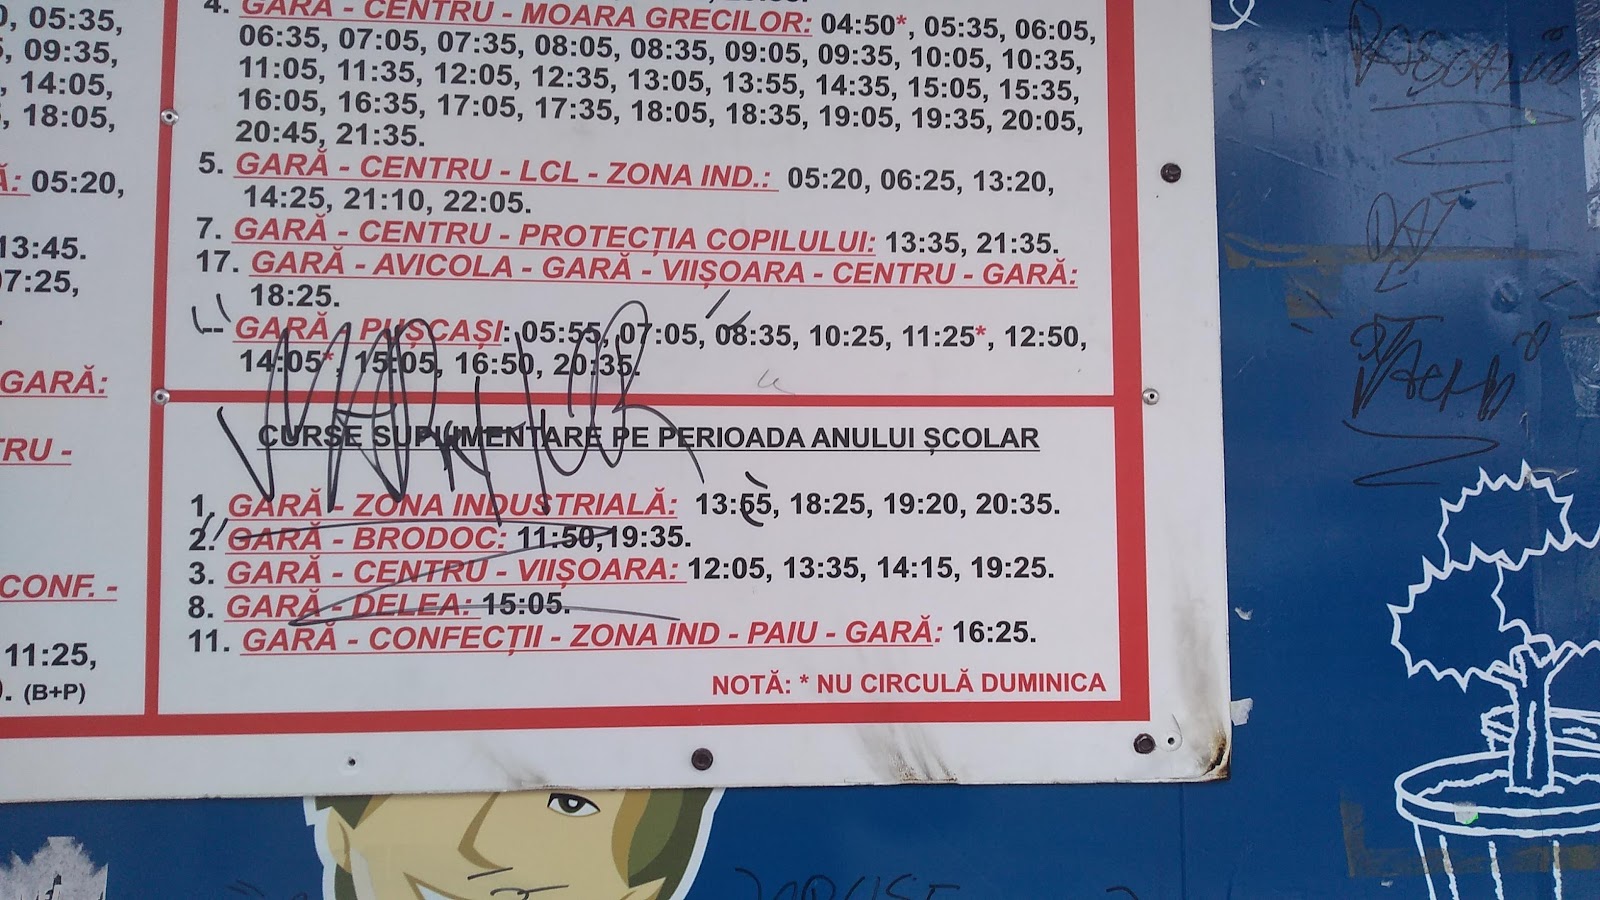 05:35,
09:35,
14:05,
18:05,
05:20,
13:45.
07:25,
GARĂ:
CONF. -
11:25,
(B+P)
4. GARĂ - CENTRU - MOARA GRECILOR: 04:50*, 05:35, 06:05,
06:35, 07:05, 07:35, 08:05, 08:35, 09:05, 09:35, 10:05, 10:35,
11:05, 11:35, 12:05, 12:35, 13:05, 13:55, 14:35, 15:05, 15:35,
16:05, 16:35, 17:05, 17:35, 18:05, 18:35, 19:05, 19:35, 20:05,
20:45, 21:35.
5. GARĂ - CENTRU - LCL - ZONA IND.: 05:20, 06:25, 13:20,
14:25, 21:10, 22:05.
7. GARĂ - CENTRU - PROTECȚIA COPILULUI: 13:35, 21:35.
17. GARĂ - AVICOLA - GARĂ - VIIȘOARA - CENTRU - GARĂ:
18:25.
-- GARĂ - PUȘCAȘI: 05:55, 07:05, 08:35, 10:25, 11:25*, 12:50,
14:05*, 15:05, 16:50, 20:35.
CURSE SUPLIMENTARE PE PERIOADA ANULUI ȘCOLAR
1. GARĂ - ZONA INDUSTRIALĂ: 13:55, 18:25, 19:20, 20:35.
2. GARĂ - BRODOC: 11:50,19:35.
3. GARĂ - CENTRU - VIIȘOARA: 12:05, 13:35, 14:15, 19:25.
8. GARĂ - DELEA: 15:05.
11. GARĂ - CONFECȚII - ZONA IND - PAIU - GARĂ: 16:25.
NOTĂ: * NU CIRCULĂ DUMINICA